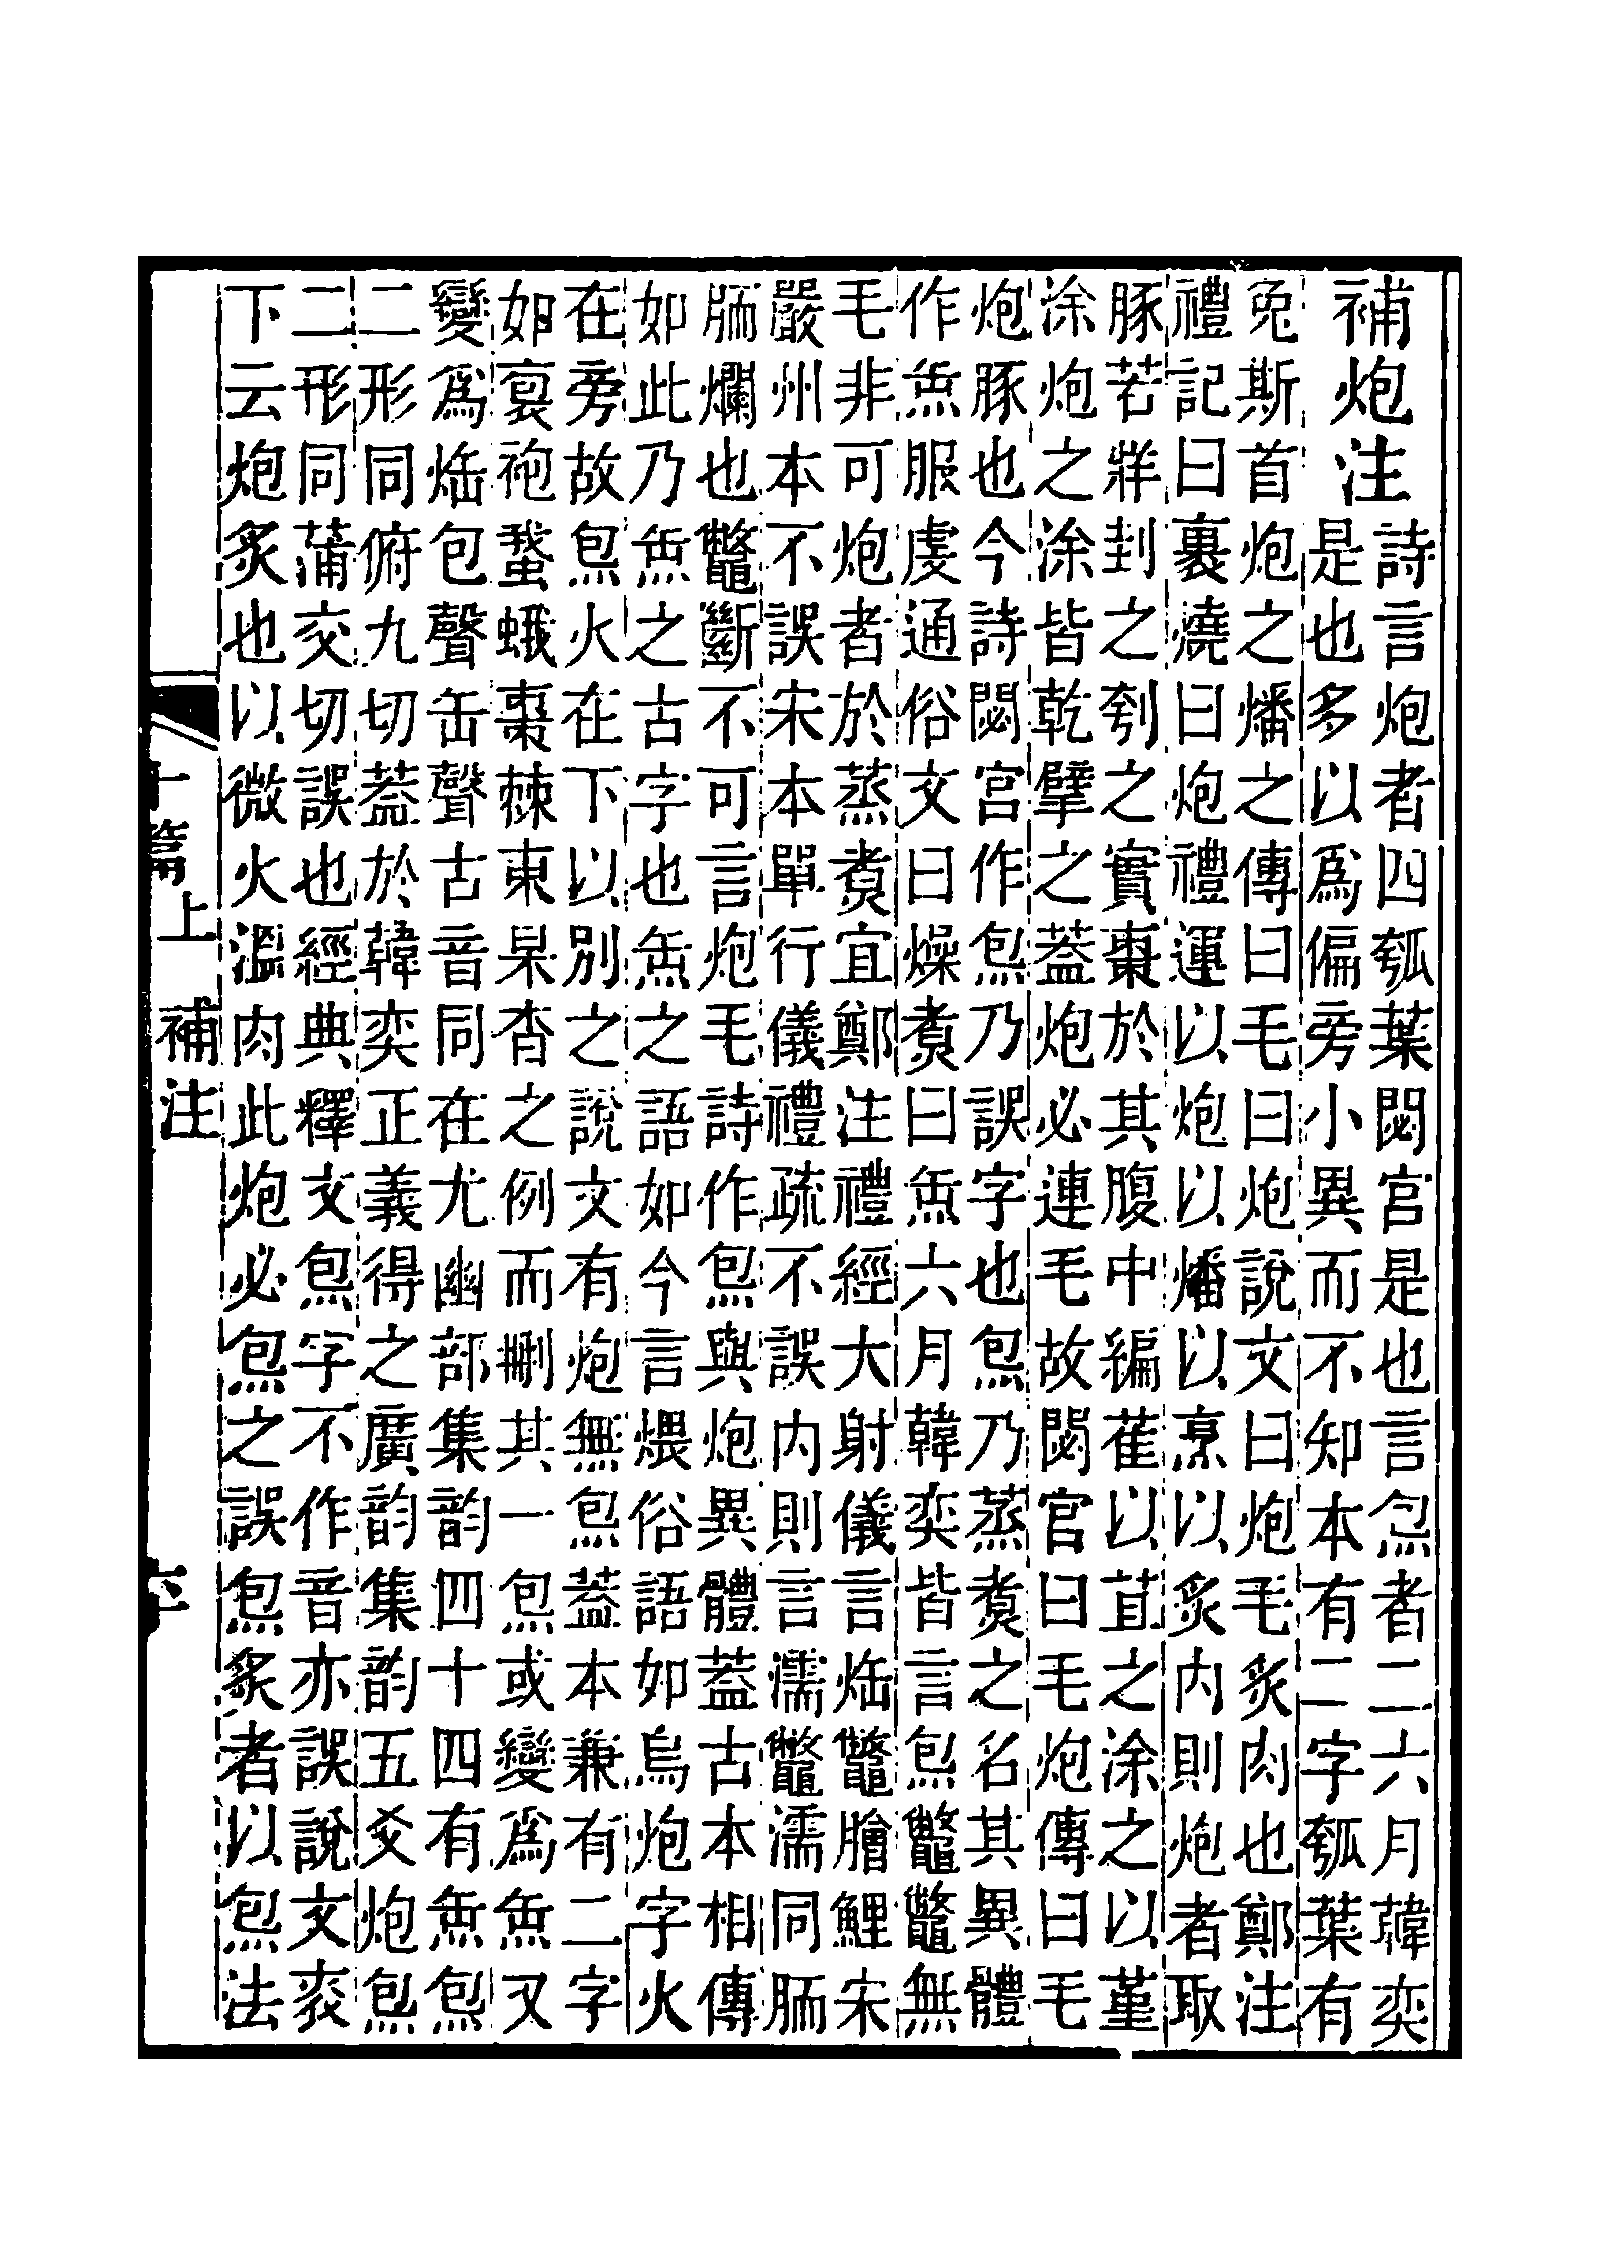 補炮注
詩言炮者四瓠葉閟宮是也言炰者二六月韓奕
是也多以爲偏旁小異而不知本有二字瓠葉有
兔斯首炮之燔之傳曰毛曰炮說文曰炮毛炙肉也鄭注
禮記曰裹燒曰炮禮運以炮以燔以烹以炙內則炮者取
豚若牂封之刳之實棗於其腹中編萑以苴之涂之以堇
涂炮之涂皆乾擘之葢炮必連毛故閟宮曰毛炮傳曰毛
炮豚也今詩閟宮作炰乃誤字也炰乃蒸煑之名其異體
作缹服虔通俗文曰燥煑曰缹六月韓奕皆言炰鼈鼈無
毛非可炮者於蒸煑宜鄭注禮經大射儀言⿰火缶鼈膾鯉宋
嚴州本不誤宋本單行儀禮疏不誤內則言濡鼈濡同胹
胹爛也鼈斷不可言炮毛詩作炰與炮異體葢古本相傳
如此乃缹之古字也缹之語如今言煨俗語如烏炮字火
在旁故炰火在下以別之說文有炮無炰葢本兼有二字
如裒袍蟊蛾棗棘東杲杳之例而刪其一炰或變爲缹又
變爲⿰火缶包聲缶聲古音同在尤幽部集韵四十四有缹炰
二形同俯九切葢於韓奕正義得之廣韵集韵五爻炮炰
二形同蒲交切誤也經典釋文炰字不作音亦誤說文⿱衣火
下云炮炙也以微火溫肉此炮必炰之誤炰炙者以炰法
十篇上 補注